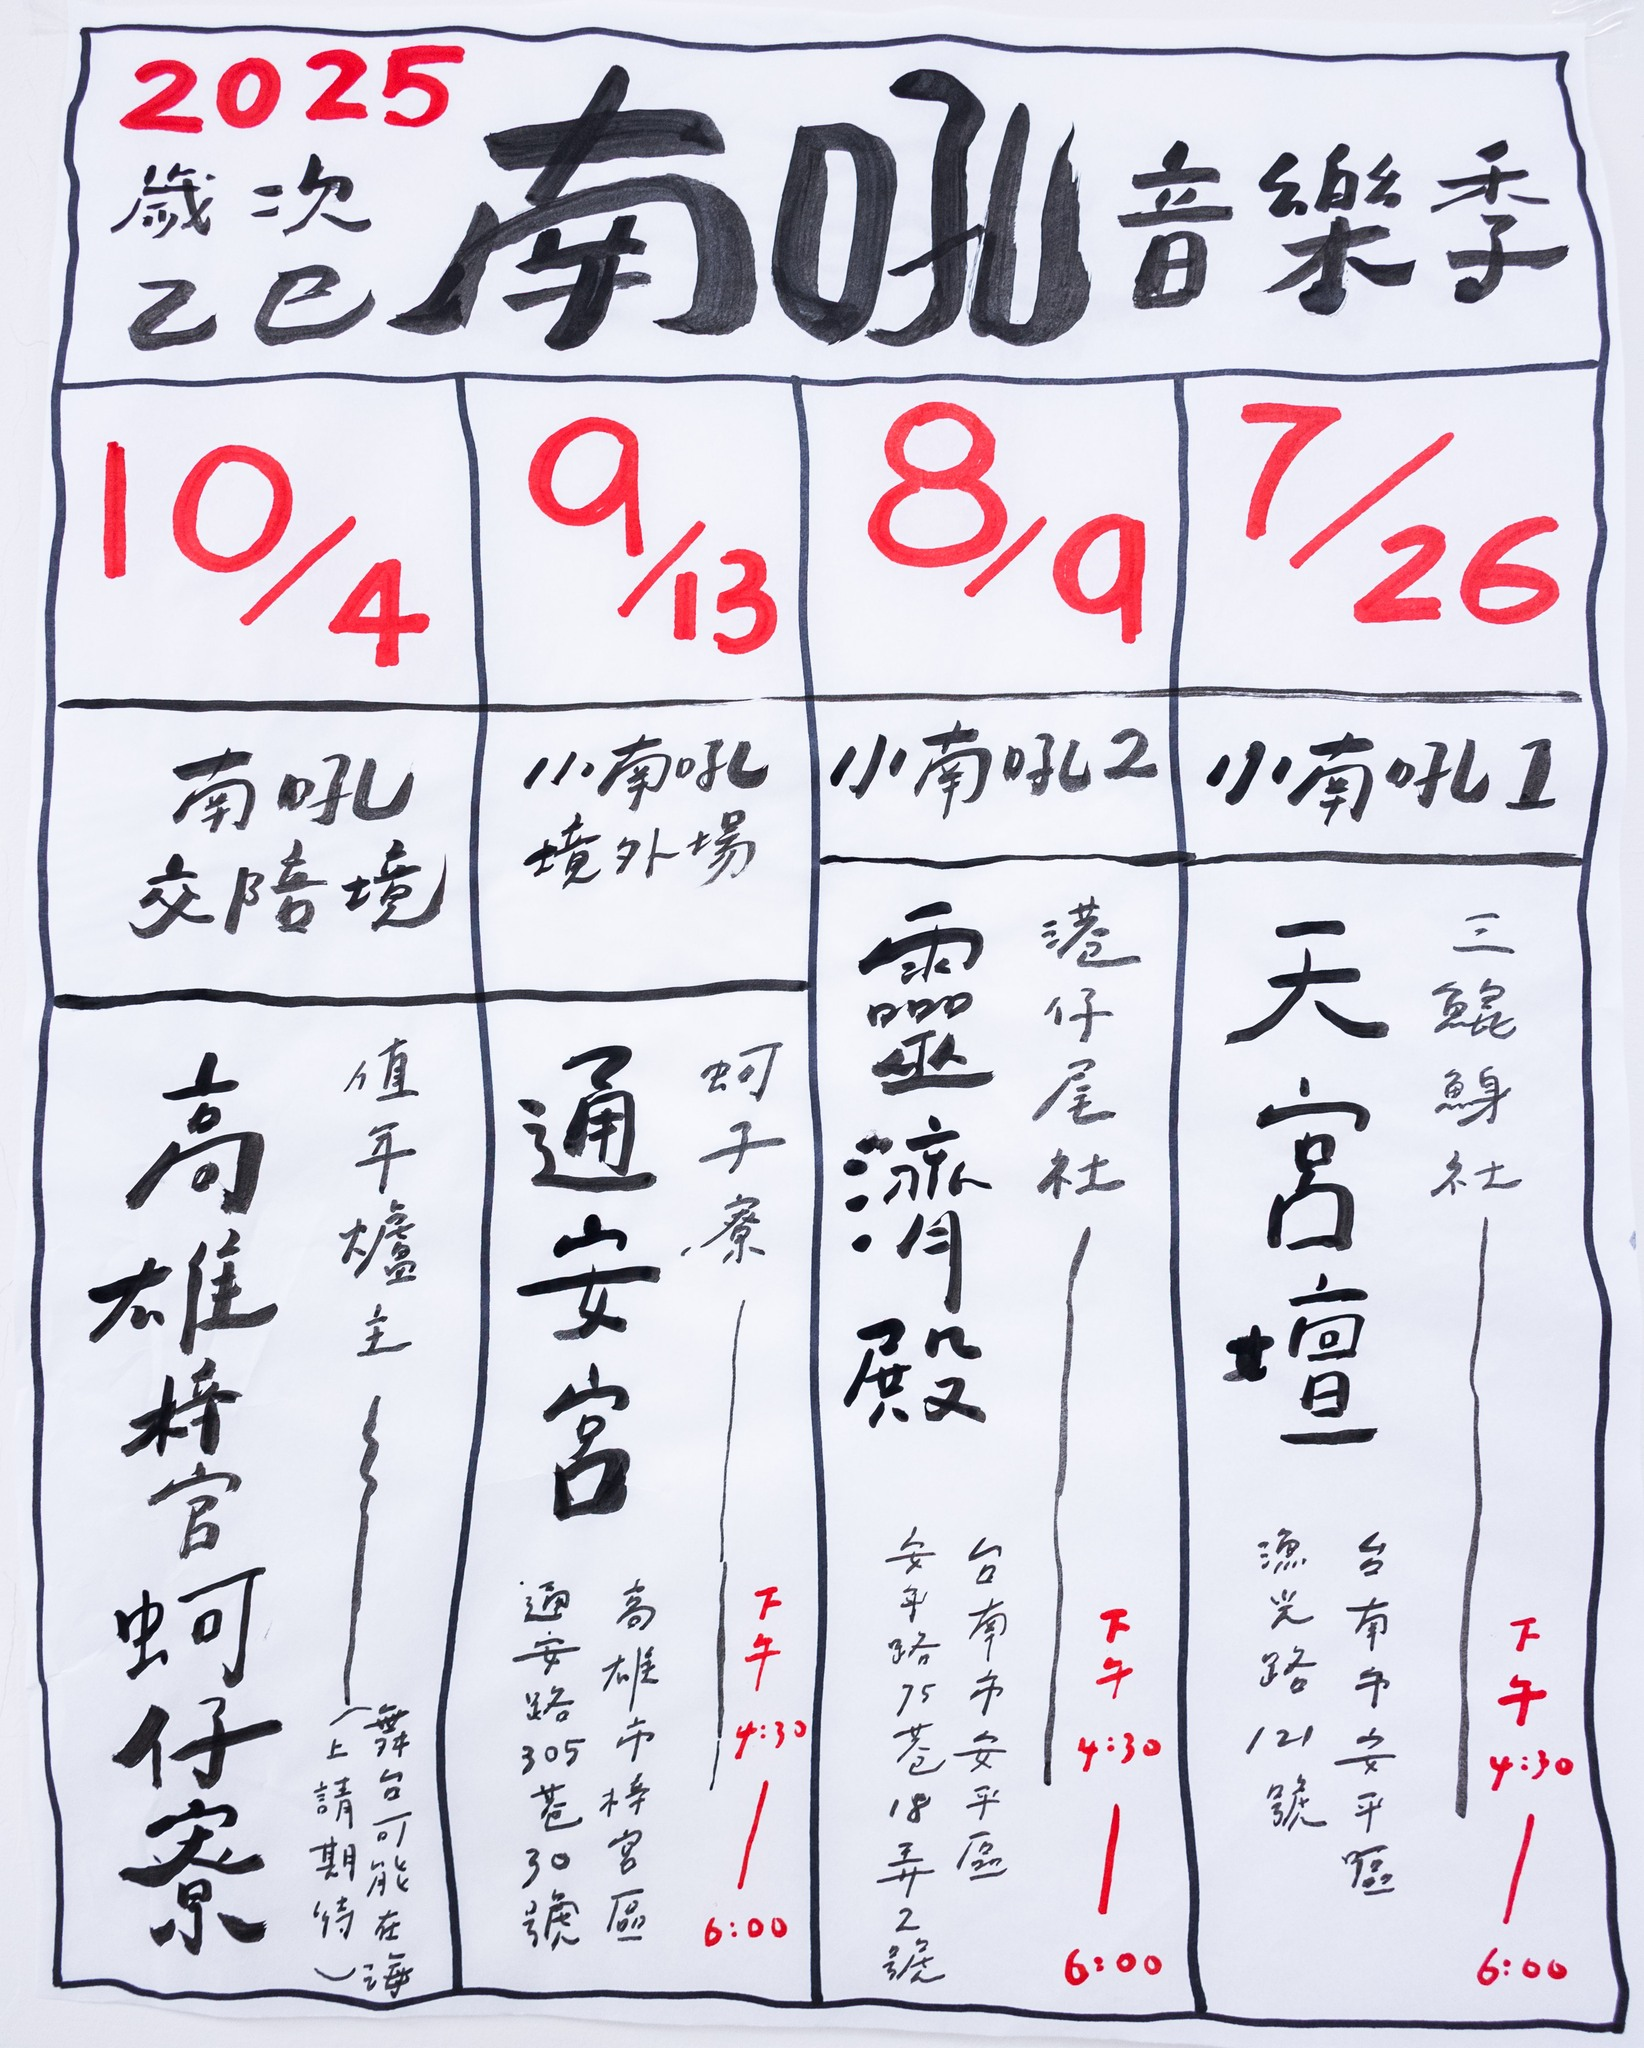 2025
歲次
乙巳
南吼音樂季
7/26
小南吼1
三鯤鯓社
天宮壇
台南市安平區
漁光路121號
下午4:30
6:00
8/9
小南吼2
港仔尾社
靈濟殿
台南市安平區
安平路75巷18弄2號
下午4:30
6:00
9/13
小南吼
境外場
蚵子寮
通安宮
高雄市梓官區
通安路305巷30號
下午4:30
6:00
10/4
南吼
交陪境
值年爐主
高雄梓官蚵仔寮
（舞台可能在海
上請期待）